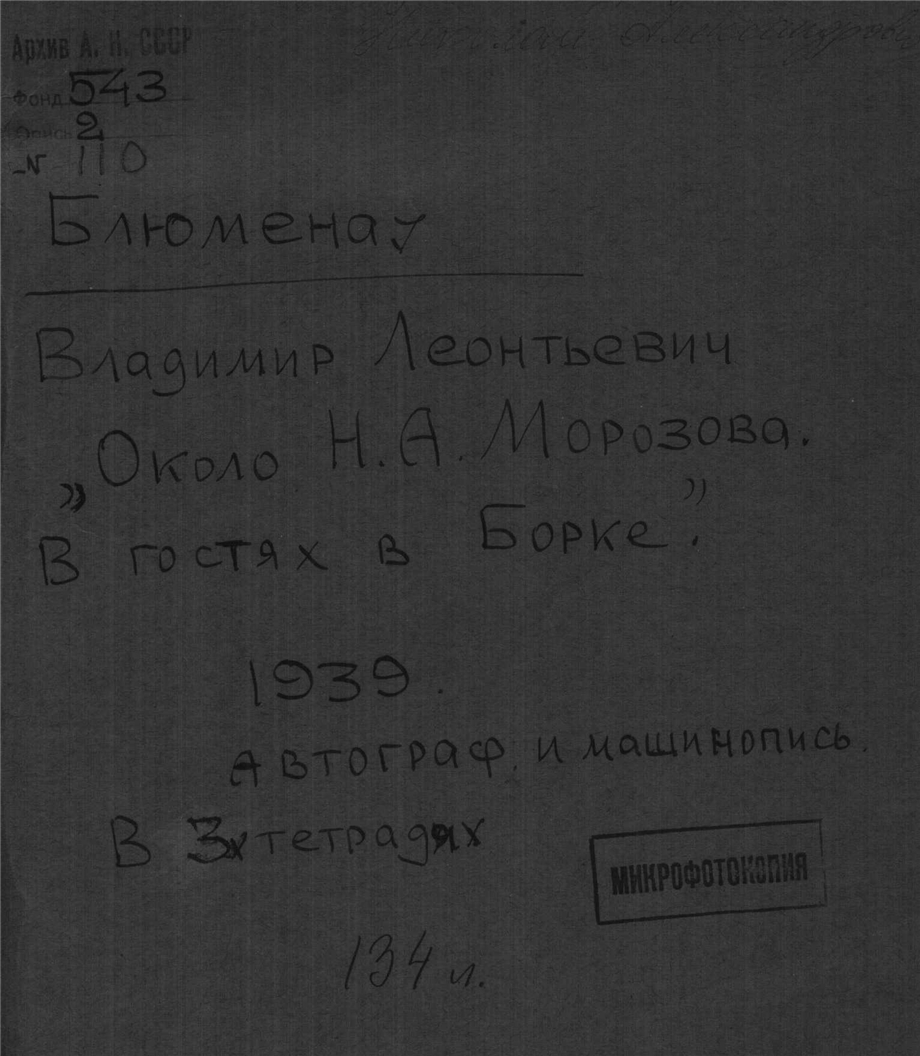 Николай Александрови
Архив А. Н. СССР
Фонд 543
Опись 2
№ 110
Блюменау
Владимир Леонтьевич
„Около Н.А. Морозова.
В гостях в Борке."
1939.
Автограф и машинопись.
В 3х тетрадях
МИКРОФОТОКОПИЯ
134 л.